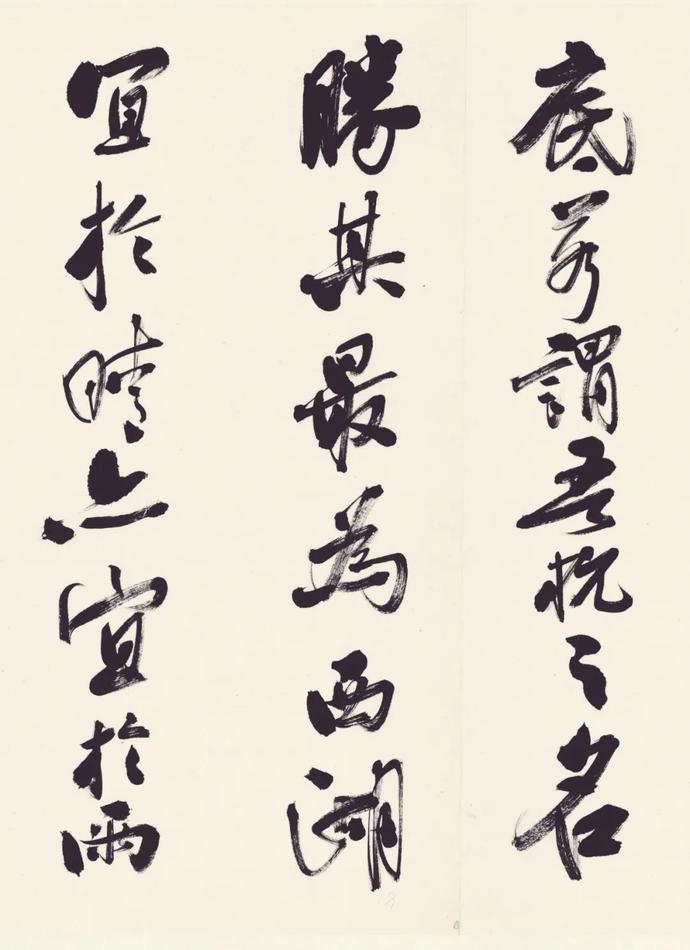 底若謂吾杭之名
勝其最為西湖
宜於晴亦宜於雨